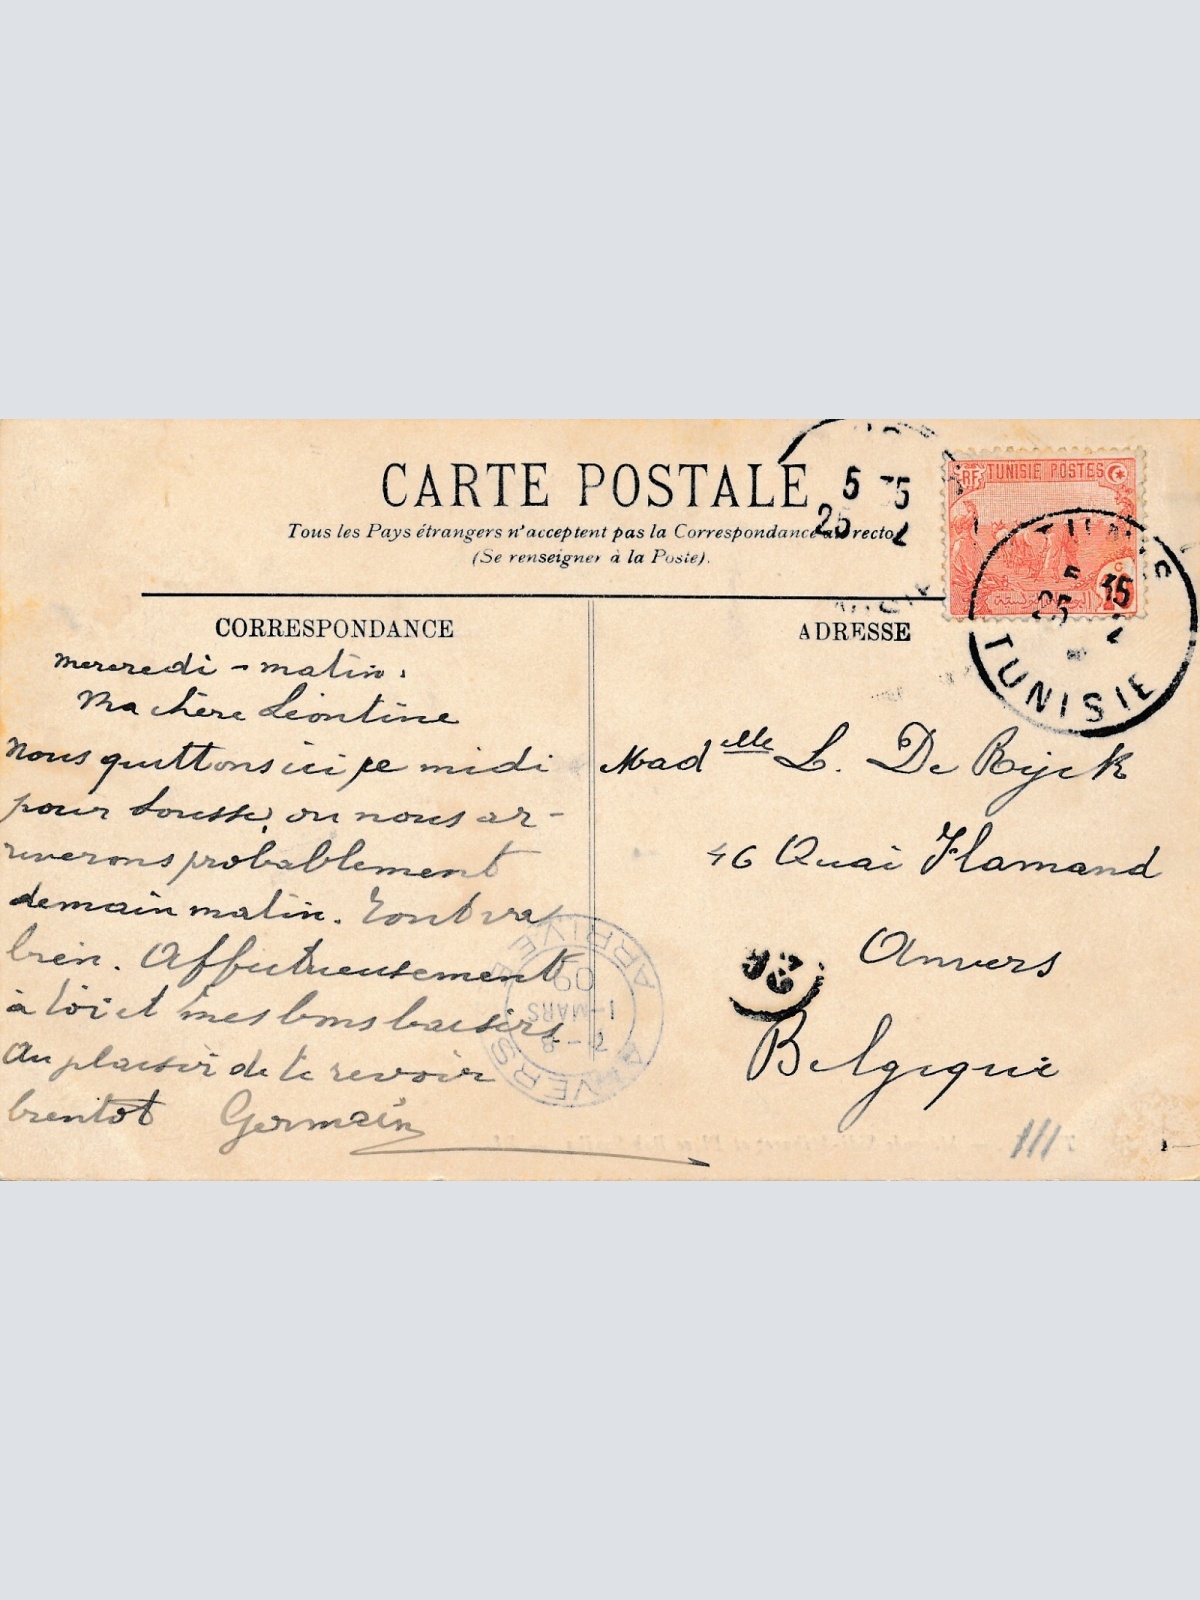 CARTE POSTALE
Tous les Pays étrangers n'acceptent pas la Correspondance au recto
(Se renseigner à la Poste).
5 35
25 2
RF TUNISIE POSTES
TUNIS
5 15
25 2
TUNISIE
CORRESPONDANCE
mercredi - matin.
Ma chère Léontine
Nous quittons ici ce midi
pour Sousse, ou nous ar-
riverons probablement
demain matin. Tout va
bien. Affectueusement
à toi et mes bons baisers
Au plaisir de te revoir
bientot Germain
ADRESSE
Mad elle L. De Rijck
46 Quai Flamand
Anvers
Belgique
ANVERS ARRIVÉE
7-8
1-MARS
09